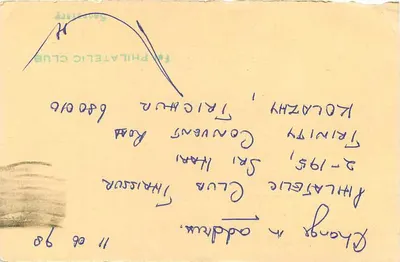 11 06 90
Change in address.
PHILATELIC CLUB THRISSUR
2-195, SRI HARI
TRINITY CONVENT ROAD
KOLAZHY, TRICHUR 680010
For PHILATELIC CLUB
Secretary